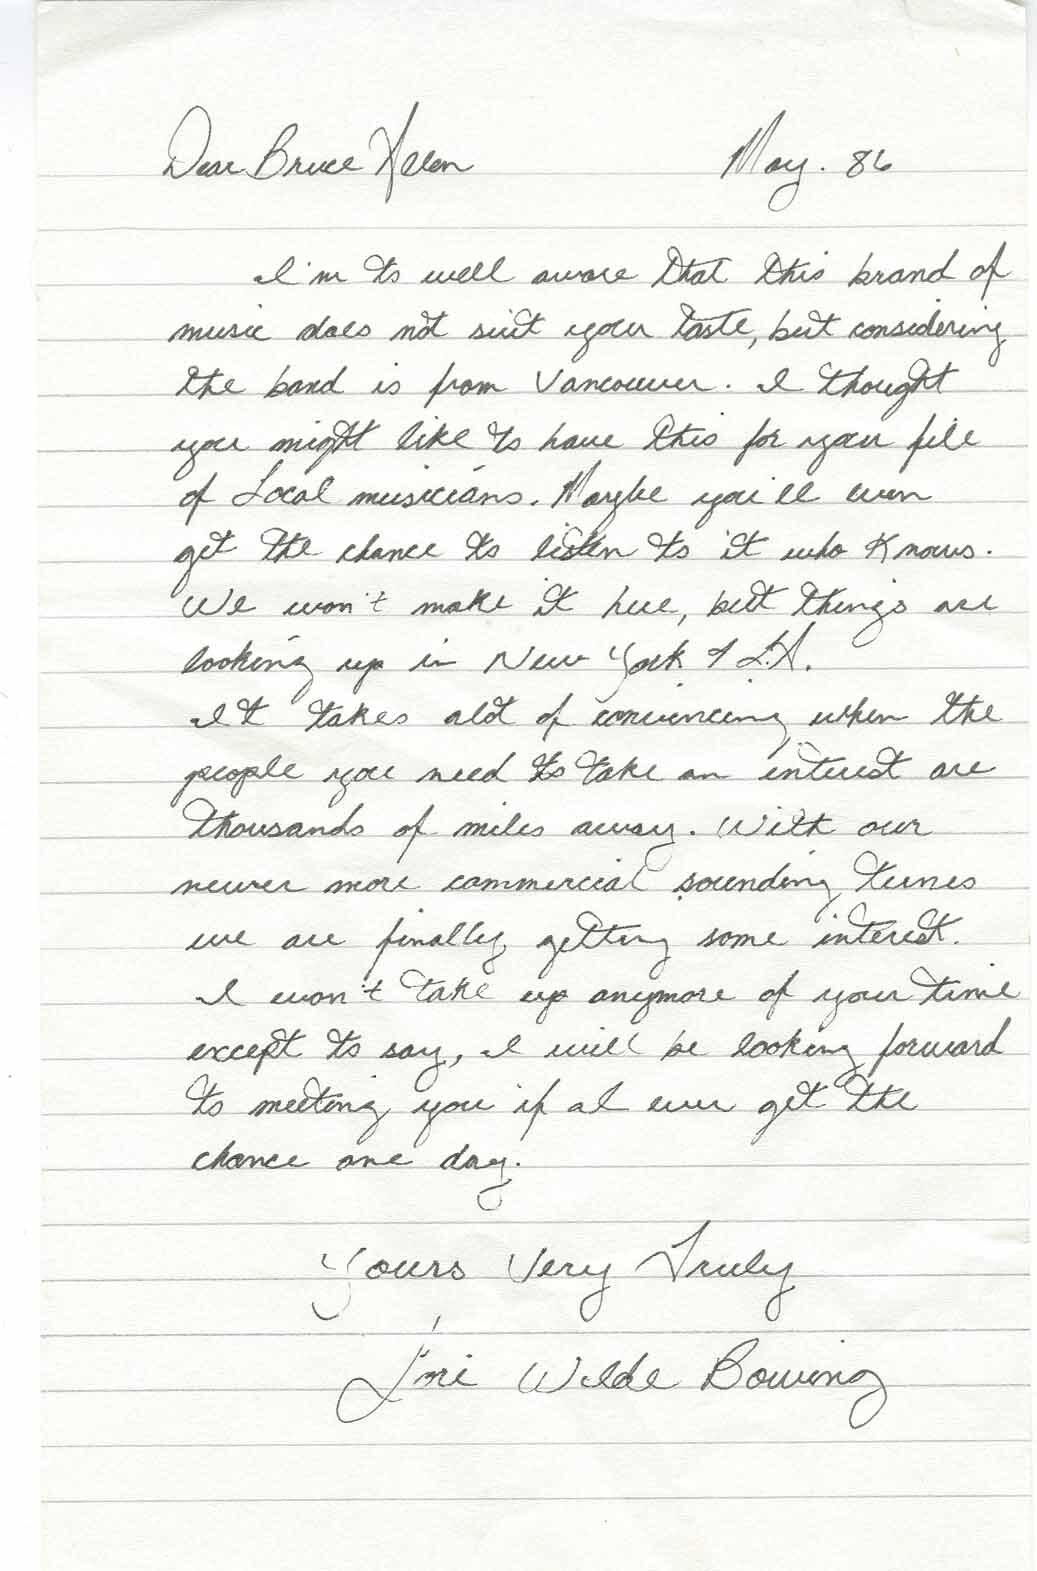 Dear Bruce Allen May. 86
I'm to well aware that this brand of
music does not suit your taste, but considering
the band is from Vancouver. I thought
you might like to have this for your file
of Local musicians. Maybe you'll even
get the chance to listen to it who knows.
We won't make it here, but things are
looking up in New York & L.A.
It takes alot of convincing when the
people you need to take an interest are
thousands of miles away. With our
newer more commercial sounding tunes
we are finally getting some interest.
I won't take up anymore of your time
except to say, I will be looking forward
to meeting you if I ever get the
chance one day.
Yours Very Truly
Wilde Bowing